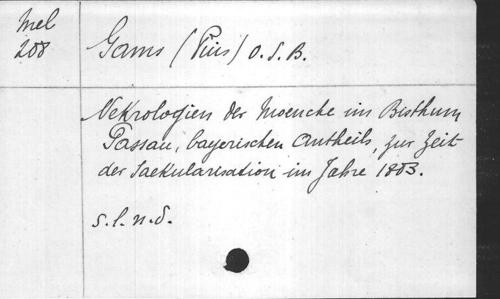 Mel
208
Gams (Pius) O.S.B.
Nekrologien der Moenche im Bisthum
Passau, bayerischen Antheils, zur Zeit
der Saekularisation im Jahre 1803.
s.l.n.d.